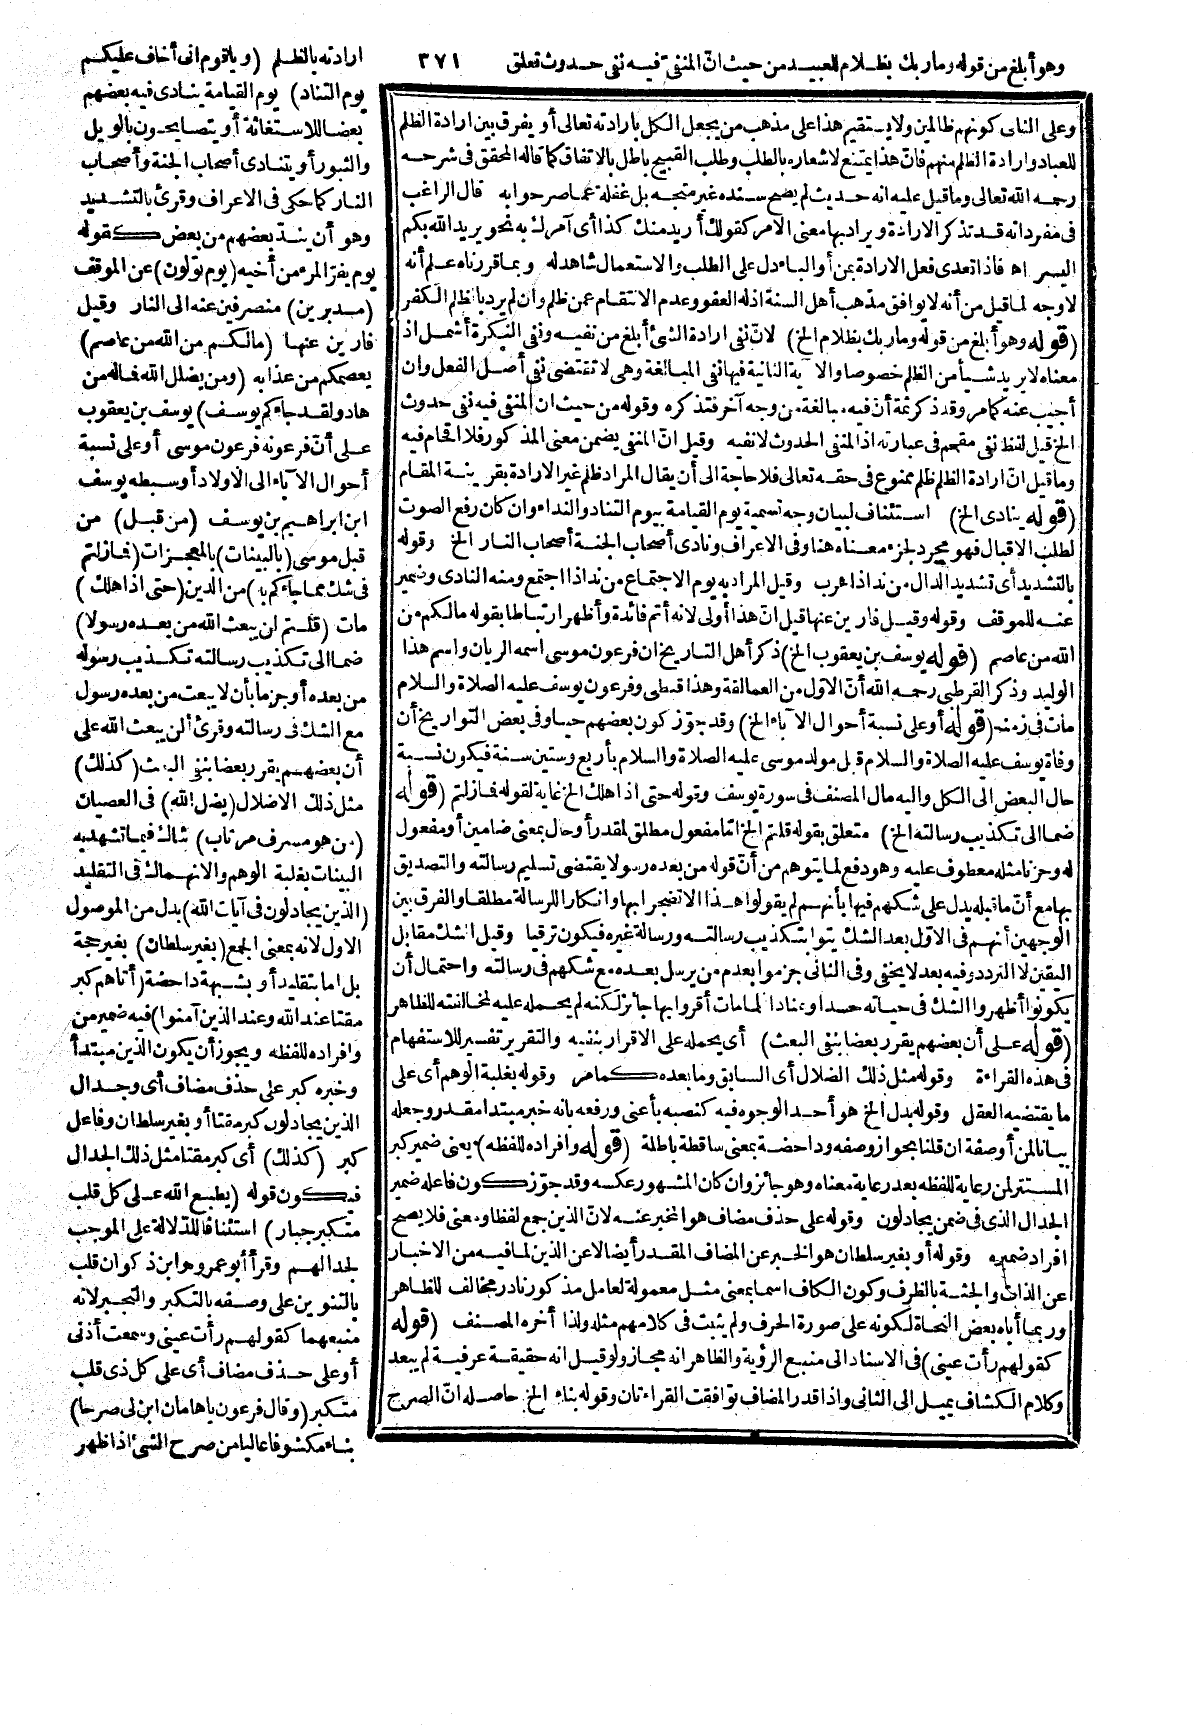 وهو أبلغ من قوله وما ربك بظلام للعبيد من حيث انّ المنفىّ فيه نفى حدوث تعلق
٣٧١
ارادته بالظلم (و يا قوم انى أخاف عليكم
يوم التناد) يوم القيامة ينادى فيه بعضهم
بعضا للاستغاثة أو يتصايحون بالويل
والثبور أو يتنادى أصحاب الجنة وأصحاب
النار كما حكى فى الاعراف وقرئ بالتشديد
وهو أن يندّ بعضهم من بعض كقوله
يوم يفرّ المرء من أخيه (يوم تولون) عن الموقف
(مدبرين) منصرفين عنه الى النار وقيل
فارين عنها (مالكم من الله من عاصم)
يعصمكم من عذابه (ومن يضلل الله فماله من
هاد ولقد جاءكم يوسف) يوسف بن يعقوب
على أنّ فرعونه فرعون موسى أو على نسبة
أحوال الآباء الى الاولاد أو سبطه يوسف
ابن ابراهيم بن يوسف (من قبل) من
قبل موسى (بالبينات) بالمعجزات (فما زلتم
فى شك مما جاءكم به) من الدين (حتى اذا هلك)
مات (قلتم لن يبعث الله من بعده رسولا)
ضما الى تكذيب رسالته تكذيب رسوله
من بعده أو جزما بأن لا يبعث من بعده رسول
مع الشك فى رسالته وقرئ ألن يبعث الله على
أن بعضهم يقرر بعضا بنفى البعث (كذلك)
مثل ذلك الاضلال (يضل الله) فى العصيان
(من هو مسرف مرتاب) شاك فيما تشهد به
البينات بغلبة الوهم والانهماك فى التقليد
(الذين يجادلون فى آيات الله) بدل من الموصول
الاول لانه بمعنى الجمع (بغير سلطان) بغير حجة
بل اما بتقليد أو بشبهة داحضة (أتاهم كبر
مقتا عند الله وعند الذين آمنوا) فيه ضمير من
وافراده للفظه ويجوز أن يكون الذين مبتدأ
وخبره كبر على حذف مضاف أى وجدال
الذين يجادلون كبر مقتا أو بغير سلطان وفاعل
كبر (كذلك) أى كبر مقتا مثل ذلك الجدال
فيكون قوله (يطبع الله على كل قلب
متكبر جبار) استئنافا للدلالة على الموجب
لجدالهم وقرأ أبو عمرو وابن ذكوان قلب
بالتنوين على وصفه بالتكبر والتجبر لانه
منبعهما كقولهم رأت عينى وسمعت أذنى
أو على حذف مضاف أى على كل ذى قلب
متكبر (وقال فرعون يا هامان ابن لى صرحا)
بناء مكشوفا عاليا من صرح الشئ اذا ظهر
وعلى الثانى كونهم ظالمين ولا يستقيم هذا على مذهب من يجعل الكل بارادته تعالى أو يفرق بين ارادة الظلم
للعباد وارادة الظلم منهم فانّ هذا يمتنع لاشعاره بالطلب وطلب القبيح باطل بالاتفاق كما قاله المحقق فى شرحه
رحمه الله تعالى وما قيل عليه انه حديث لم يصح سنده غير متجه بل غفلة عما صرحوا به قال الراغب
فى مفرداته قد تذكر الارادة ويراد بها معنى الامر كقولك أريد منك كذا أى آمرك به نحو يريد الله بكم
اليسر اه فاذا تعدى فعل الارادة بمن أو الباء دل على الطلب والاستعمال شاهد له وبما قررناه علم أنه
لا وجه لما قيل من أنه لا يوافق مذهب أهل السنة اذ له العفو وعدم الانتقام عمن ظلم وان لم يرد بالظلم الكفر
(قوله وهو أبلغ من قوله وما ربك بظلام الخ) لانّ نفى ارادة الشئ أبلغ من نفيه ونفى النكرة أشمل اذ
معناه لا يريد شيأ من الظلم خصوصا والآية الثانية فيها نفى المبالغة وهى لا تقتضى نفى أصل الفعل وان
أجيب عنه كما مر وقد ذكر ثمة أنّ فيه مبالغة من وجه آخر فتذكره وقوله من حيث ان المنفى فيه نفى حدوث
الخ قيل لفظ نفى مقحم فى عبارته اذ المنفى الحدوث لا نفيه وقيل انّ المنفى يضمن معنى المذكور فلا اقحام فيه
وما قيل انّ ارادة الظلم ظلم ممنوع فى حقه تعالى فلا حاجة الى أن يقال المراد ظلم غير الارادة بقرينة المقام
(قوله ينادى الخ) استئناف لبيان وجه تسمية يوم القيامة بيوم التناد والنداء وان كان رفع الصوت
لطلب الاقبال فهو مجرد لجزء معناه هنا وفى الاعراف ونادى أصحاب الجنة أصحاب النار الخ وقوله
بالتشديد أى تشديد الدال من ند اذا هرب وقيل المراد به يوم الاجتماع من ندا اذا اجتمع ومنه النادى وضمير
عنه للموقف وقوله وقيل فارين عنها قيل انّ هذا أولى لانه أتم فائدة وأظهر ارتباطا بقوله مالكم من
الله من عاصم (قوله يوسف بن يعقوب الخ) ذكر أهل التاريخ ان فرعون موسى اسمه الريان واسم هذا
الوليد وذكر القرطبى رحمه الله أنّ الاوّل من العمالقة وهذا قبطى وفرعون يوسف عليه الصلاة والسلام
مات فى زمنه (قوله أو على نسبة أحوال الآباء الخ) وقد جوّز كون بعضهم حيا وفى بعض التواريخ أن
وفاة يوسف عليه الصلاة والسلام قبل مولد موسى عليه الصلاة والسلام بأربع وستين سنة فيكون نسبة
حال البعض الى الكل واليه مال المصنف فى سورة يوسف وقوله حتى اذا هلك الخ غاية لقوله فما زلتم (قوله
ضما الى تكذيب رسالته الخ) متعلق بقوله قلتم الخ اما مفعول مطلق لمقدر أو حال بمعنى ضامين أو مفعول
له وجزما مثله معطوف عليه وهو دفع لما يتوهم من أنّ قوله من بعده رسولا يقتضى تسليم رسالته والتصديق
بها مع أنّ ما قبله يدل على شكهم فيها بأنهم لم يقولوا هذا الا تضجرا بها وانكارا للرسالة مطلقا والفرق بين
الوجهين أنهم فى الاوّل بعد الشك بتوا بتكذيب رسالته ورسالة غيره فيكون ترقيا وقيل الشك مقابل
اليقين لا التردد وفيه بعد لا يخفى وفى الثانى جزموا بعدم من يرسل بعده مع شكهم فى رسالته واحتمال أن
يكونوا أظهروا الشك فى حياته حسدا وعنادا فلما مات أقروا بها جائز لكنه لم يحمله عليه لمخالفته للظاهر
(قوله على أن بعضهم يقرر بعضا بنفى البعث) أى يحمله على الاقرار بنفيه والتقرير تفسير للاستفهام
فى هذه القراءة وقوله مثل ذلك الضلال أى السابق وما بعده كما مر وقوله بغلبة الوهم أى على
ما يقتضيه العقل وقوله بدل الخ هو أحد الوجوه فيه كنصبه بأعنى ورفعه بانه خبر مبتدا مقدر وجعله
بيانا لمن أو صفة ان قلنا بجواز وصفه وداحضة بمعنى ساقطة باطلة (قوله وافراده للفظه) يعنى ضمير كبر
المستتر لمن رعاية للفظه بعد رعاية معناه وهو جائز وان كان المشهور عكسه وقد جوّز كون فاعله ضمير
الجدال الذى فى ضمن يجادلون وقوله على حذف مضاف هو المخبر عنه لانّ الذين جمع لفظا ومعنى فلا يصح
افراد ضميره وقوله أو بغير سلطان هو الخبر عن المضاف المقدر أيضا لا عن الذين لما فيه من الاخبار
عن الذات والجثة بالظرف وكون الكاف اسما بمعنى مثل معمولة لعامل مذكور نادر مخالف للظاهر
وربما أباه بعض النحاة لكونه على صورة الحرف ولم يثبت فى كلامهم مثله ولذا أخره المصنف (قوله
كقولهم رأت عينى) فى الاسناد الى منبع الرؤية والظاهر انه مجاز ولو قيل انه حقيقة عرفية لم يبعد
وكلام الكشاف يميل الى الثانى واذا قدر المضاف توافقت القراءتان وقوله بناء الخ حاصله انّ الصرح